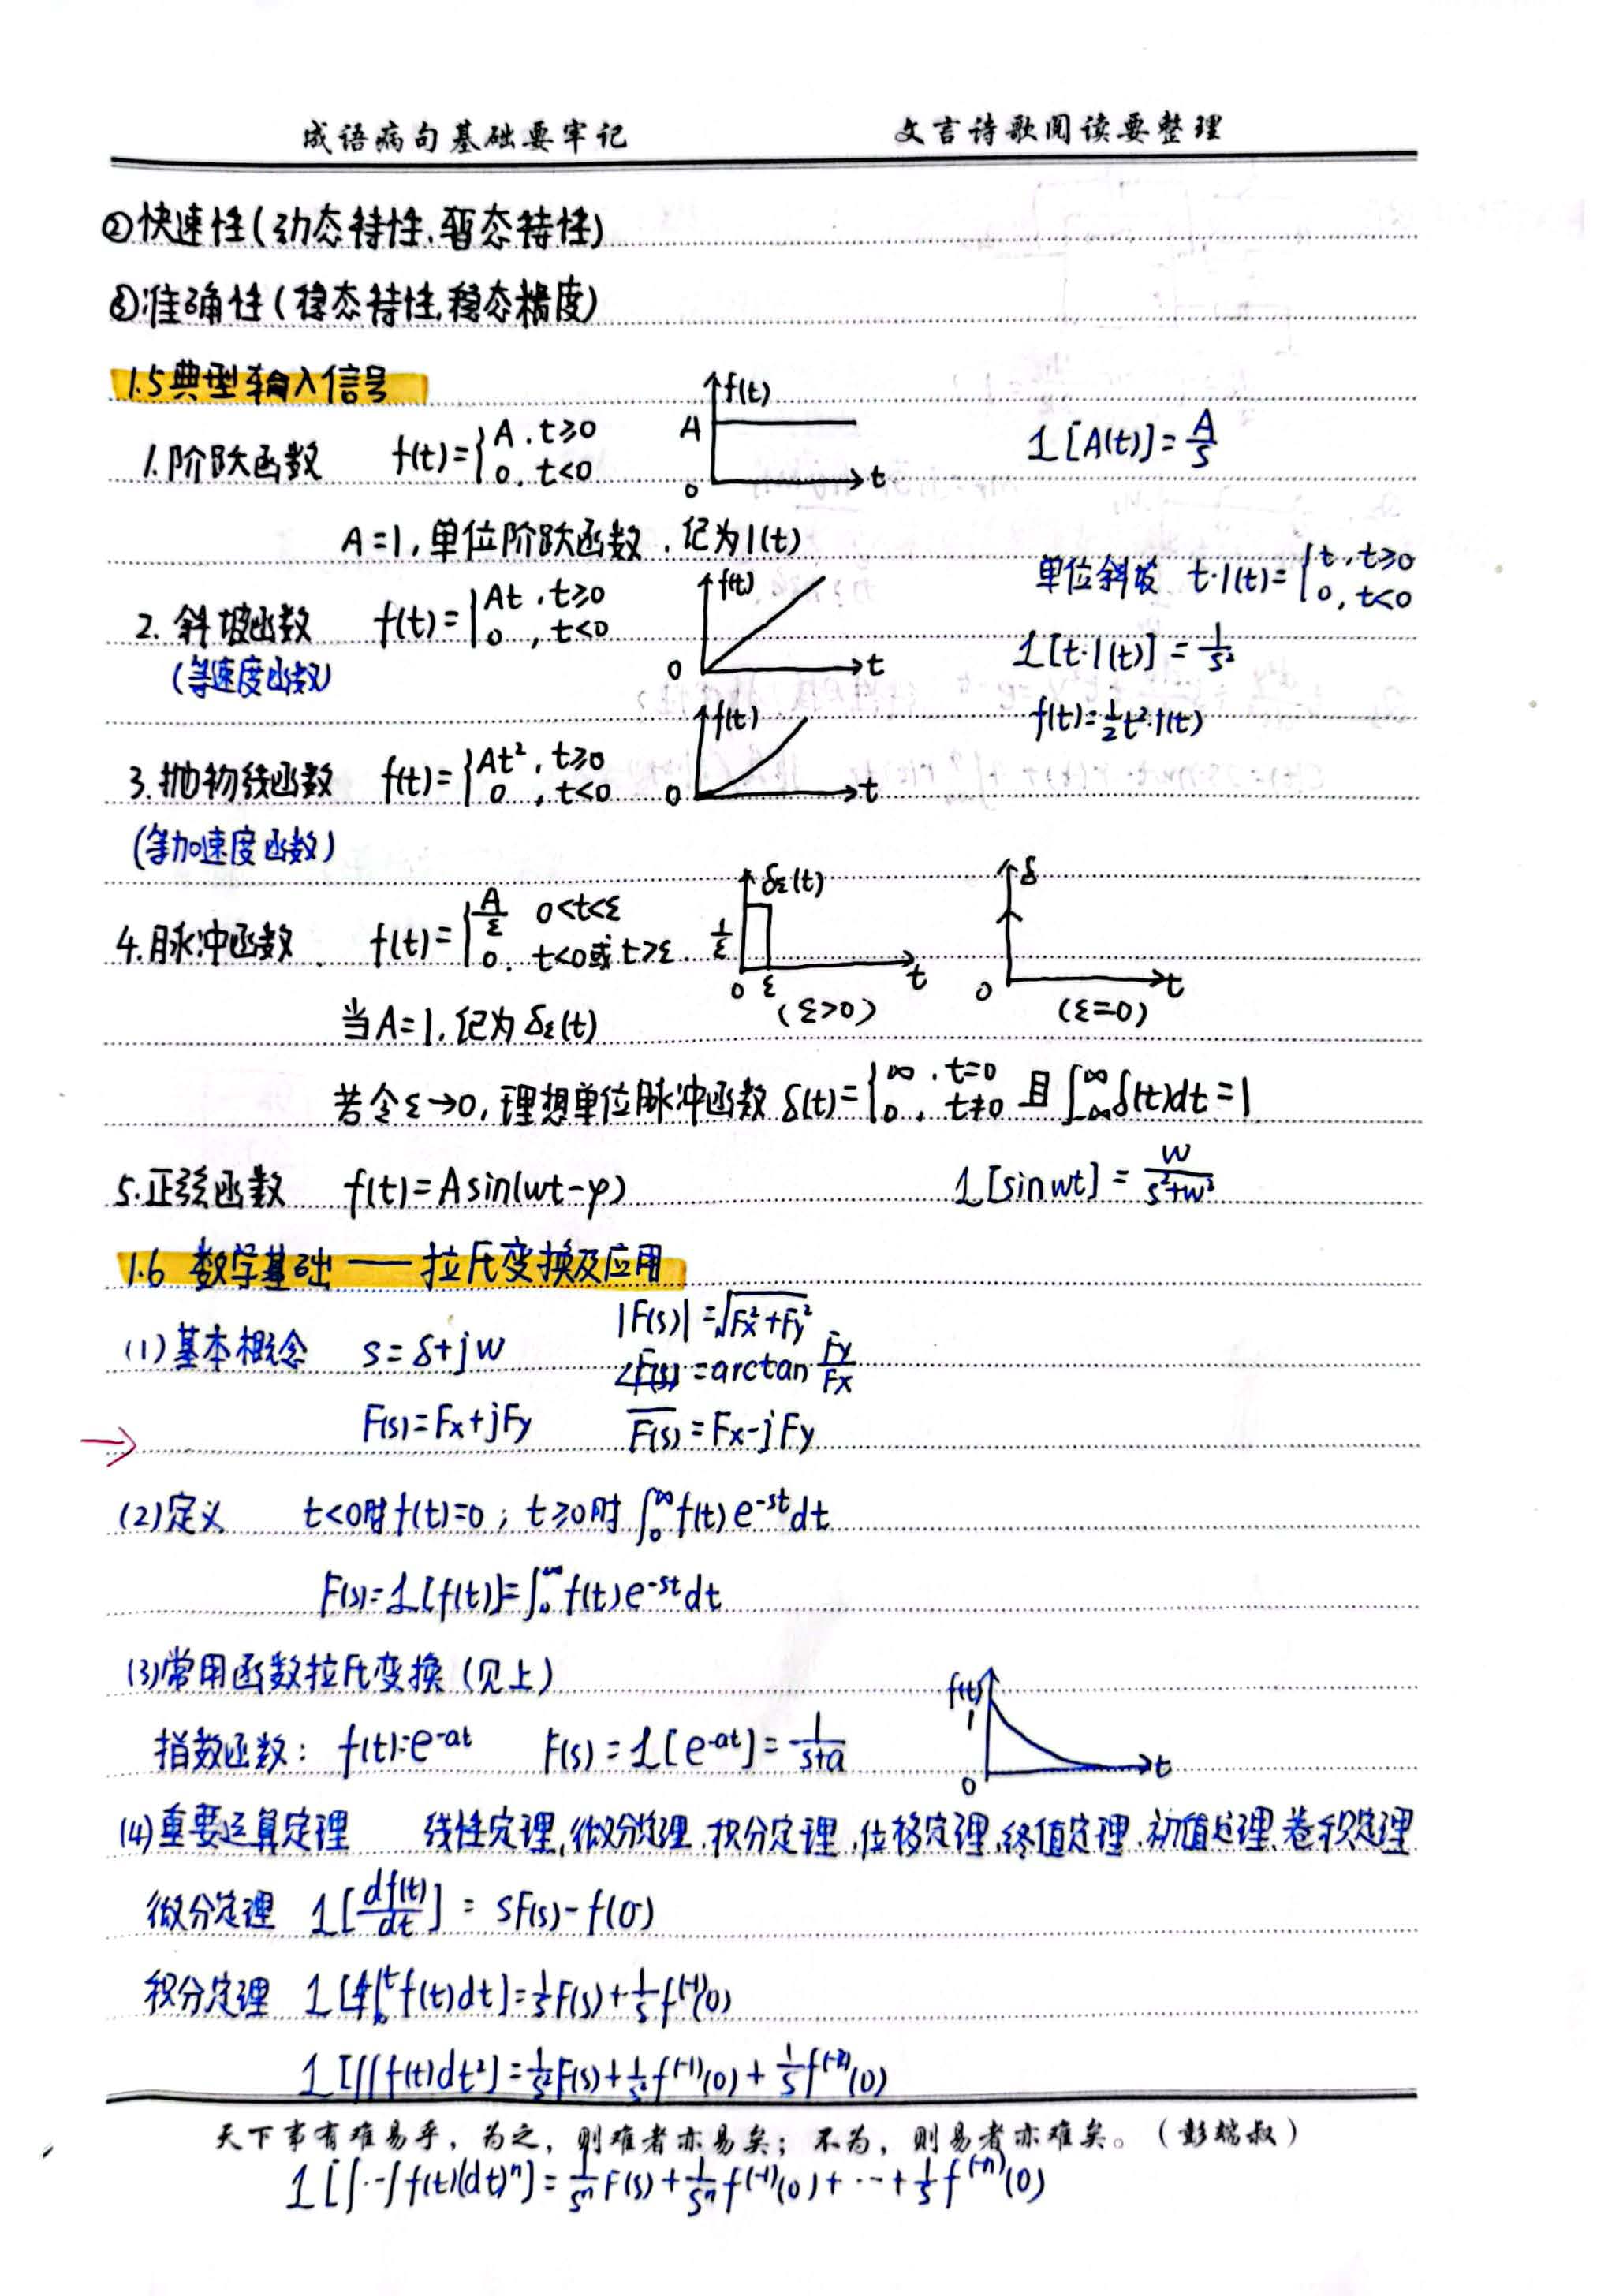 成语病句基础要牢记 文言诗歌阅读要整理
②快速性(动态特性、暂态特性)
③准确性(稳态特性,稳态精度)
1.5 典型输入信号
1.阶跃函数 f(t)={A, t≥0 0, t<0 f(t) A 0 t 𝓛[A(t)]=A/s
A=1,单位阶跃函数,记为1(t)
2. 斜坡函数 f(t)={At, t≥0 0, t<0 f(t) 0 t 单位斜坡 t·1(t)={t, t≥0 0, t<0
(等速度函数) 𝓛[t·1(t)]=1/s²
f(t)=½t²·1(t)
3.抛物线函数 f(t)={At², t≥0 0, t<0 f(t) 0 t
(等加速度函数)
4.脉冲函数 f(t)={A/ε 0<t<ε 0, t<0或t>ε. δε(t) 1/ε 0 ε t (ε>0) δ 0 t (ε=0)
当A=1,记为 δε(t)
若令ε→0,理想单位脉冲函数 δ(t)={∞, t=0 0, t≠0 且∫_{-∞}^{∞}δ(t)dt=1
5.正弦函数 f(t)=Asin(wt-φ) 𝓛[sinwt]=w/(s²+w²)
1.6 数学基础——拉氏变换及应用
(1)基本概念 s=δ+jw |F(s)|=√(Fx²+Fy²)
∠F(s)=arctan Fy/Fx
→ F(s)=Fx+jFy F̅(̅s̅)̅=Fx-jFy
(2)定义 t<0时f(t)=0; t≥0时 ∫₀^∞ f(t)e^{-st}dt
F(s)=𝓛[f(t)]=∫₀^∞ f(t)e^{-st}dt
(3)常用函数拉氏变换(见上)
指数函数: f(t)=e^{-at} F(s)=𝓛[e^{-at}]=1/(s+a) f(t) 1 0 t
(4)重要运算定理 线性定理,微分定理,积分定理,位移定理,终值定理,初值定理,卷积定理
微分定理 𝓛[df(t)/dt]=sF(s)-f(0⁻)
积分定理 𝓛[∫₀^t f(t)dt]=1/s F(s)+1/s f^{(-1)}(0)
𝓛[∫∫f(t)dt²]=1/s² F(s)+1/s² f^{(-1)}(0)+1/s f^{(-2)}(0)
天下事有难易乎,为之,则难者亦易矣;不为,则易者亦难矣。(彭端叔)
𝓛[∫···∫f(t)(dt)ⁿ]=1/sⁿ F(s)+1/sⁿ f^{(-1)}(0)+···+1/s f^{(-n)}(0)